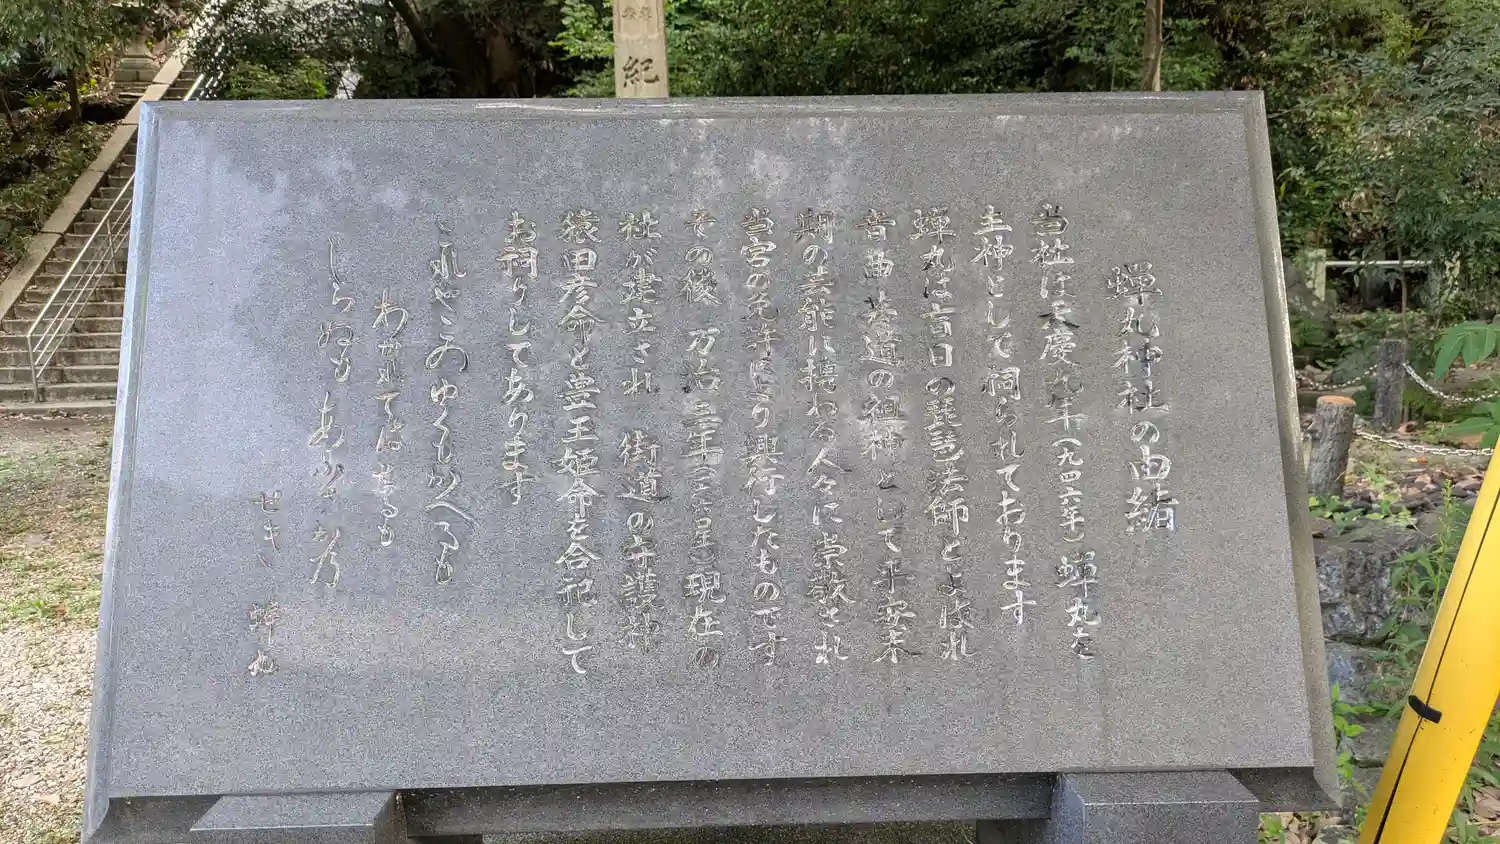 紀
蝉丸神社の由緒
当社は天慶九年（九四六年）蝉丸を
主神として祠られております
蝉丸は盲目の琵琶法師とよばれ
音曲芸道の祖神として平安末
期の芸能に携わる人々に崇敬され
当宮の免許により興行したものです
その後 万治三年（一六六〇年）現在の
社が建立され 街道の守護神
猿田彦命と豊玉姫命を合祀して
お祠りしてあります
これやこのゆくもかへるも
わかれてはしるも
しらぬもあふさかの
せき
蝉丸